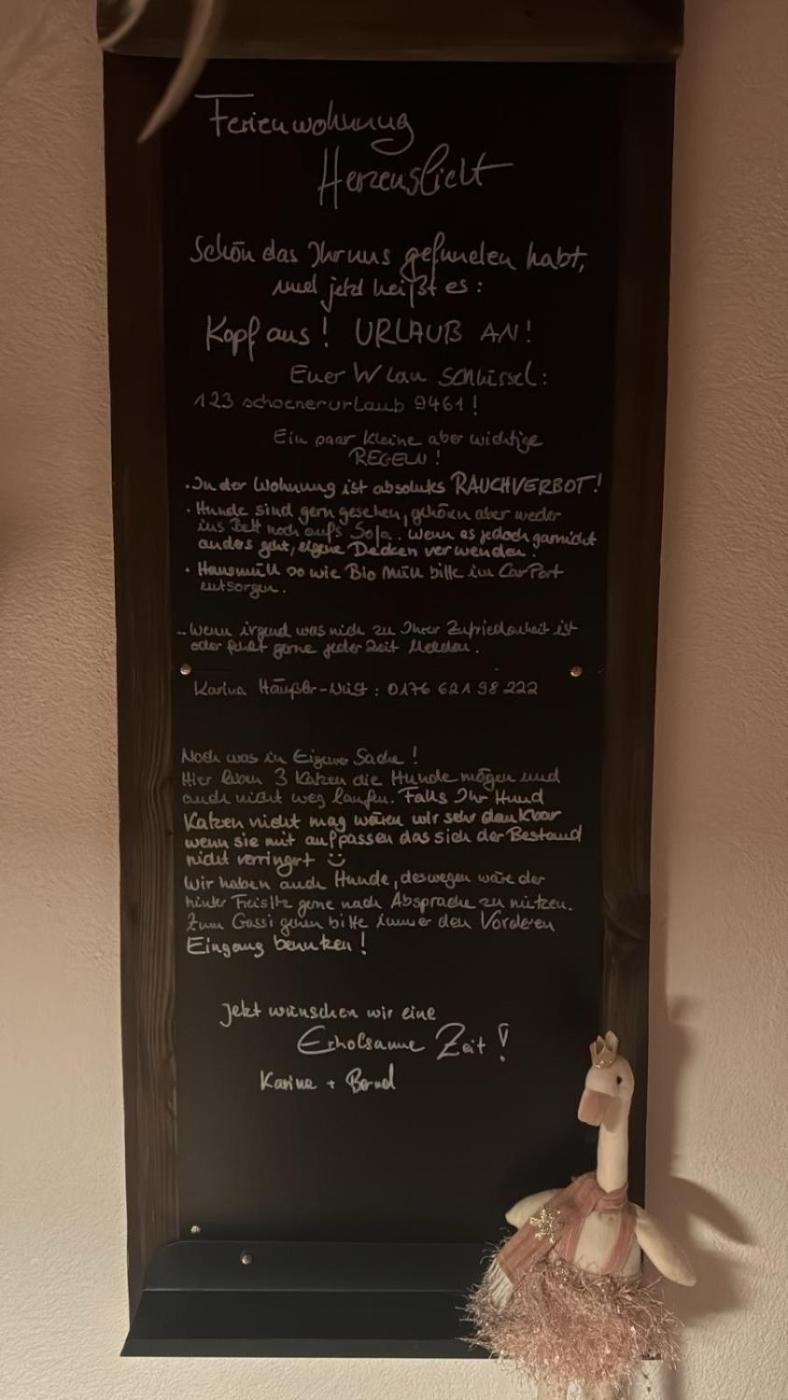 Ferienwohnung
Herzenslicht
Schön das Ihr uns gefunden habt,
und jetzt heißt es:
Kopf aus! URLAUB AN!
Euer W Lan Schlüssel:
123 schoenerurlaub 9461!
Ein paar kleine aber wichtige
REGELN!
• In der Wohnung ist absolutes RAUCHVERBOT!
• Hunde sind gern gesehen, gehören aber weder
ins Bett noch aufs Sofa. Wenn es jedoch garnicht
anders geht, eigene Decken verwenden.
• Hausmüll so wie Bio Müll bitte im CarPort
entsorgen.
Wenn irgend was nich zu Ihrer Zufriedenheit ist
oder fehlt gerne jeder Zeit Melden.
Karina : 0176 621 98 222
Noch was in Eigener Sache!
Hier leben 3 Katzen die Hunde mögen und
auch nicht weg laufen. Falls Ihr Hund
Katzen nicht mag wären wir sehr dankbar
wenn sie mit aufpassen das sich der Bestand
nicht verringert ☺
Wir haben auch Hunde, deswegen wäre der
hinter gerne nach Absprache zu nützen.
Zum Gassi gehen bitte immer den Vorderen
Eingang benutzen!
Jetzt wünschen wir eine
Erholsame Zeit!
Karina + Bernd